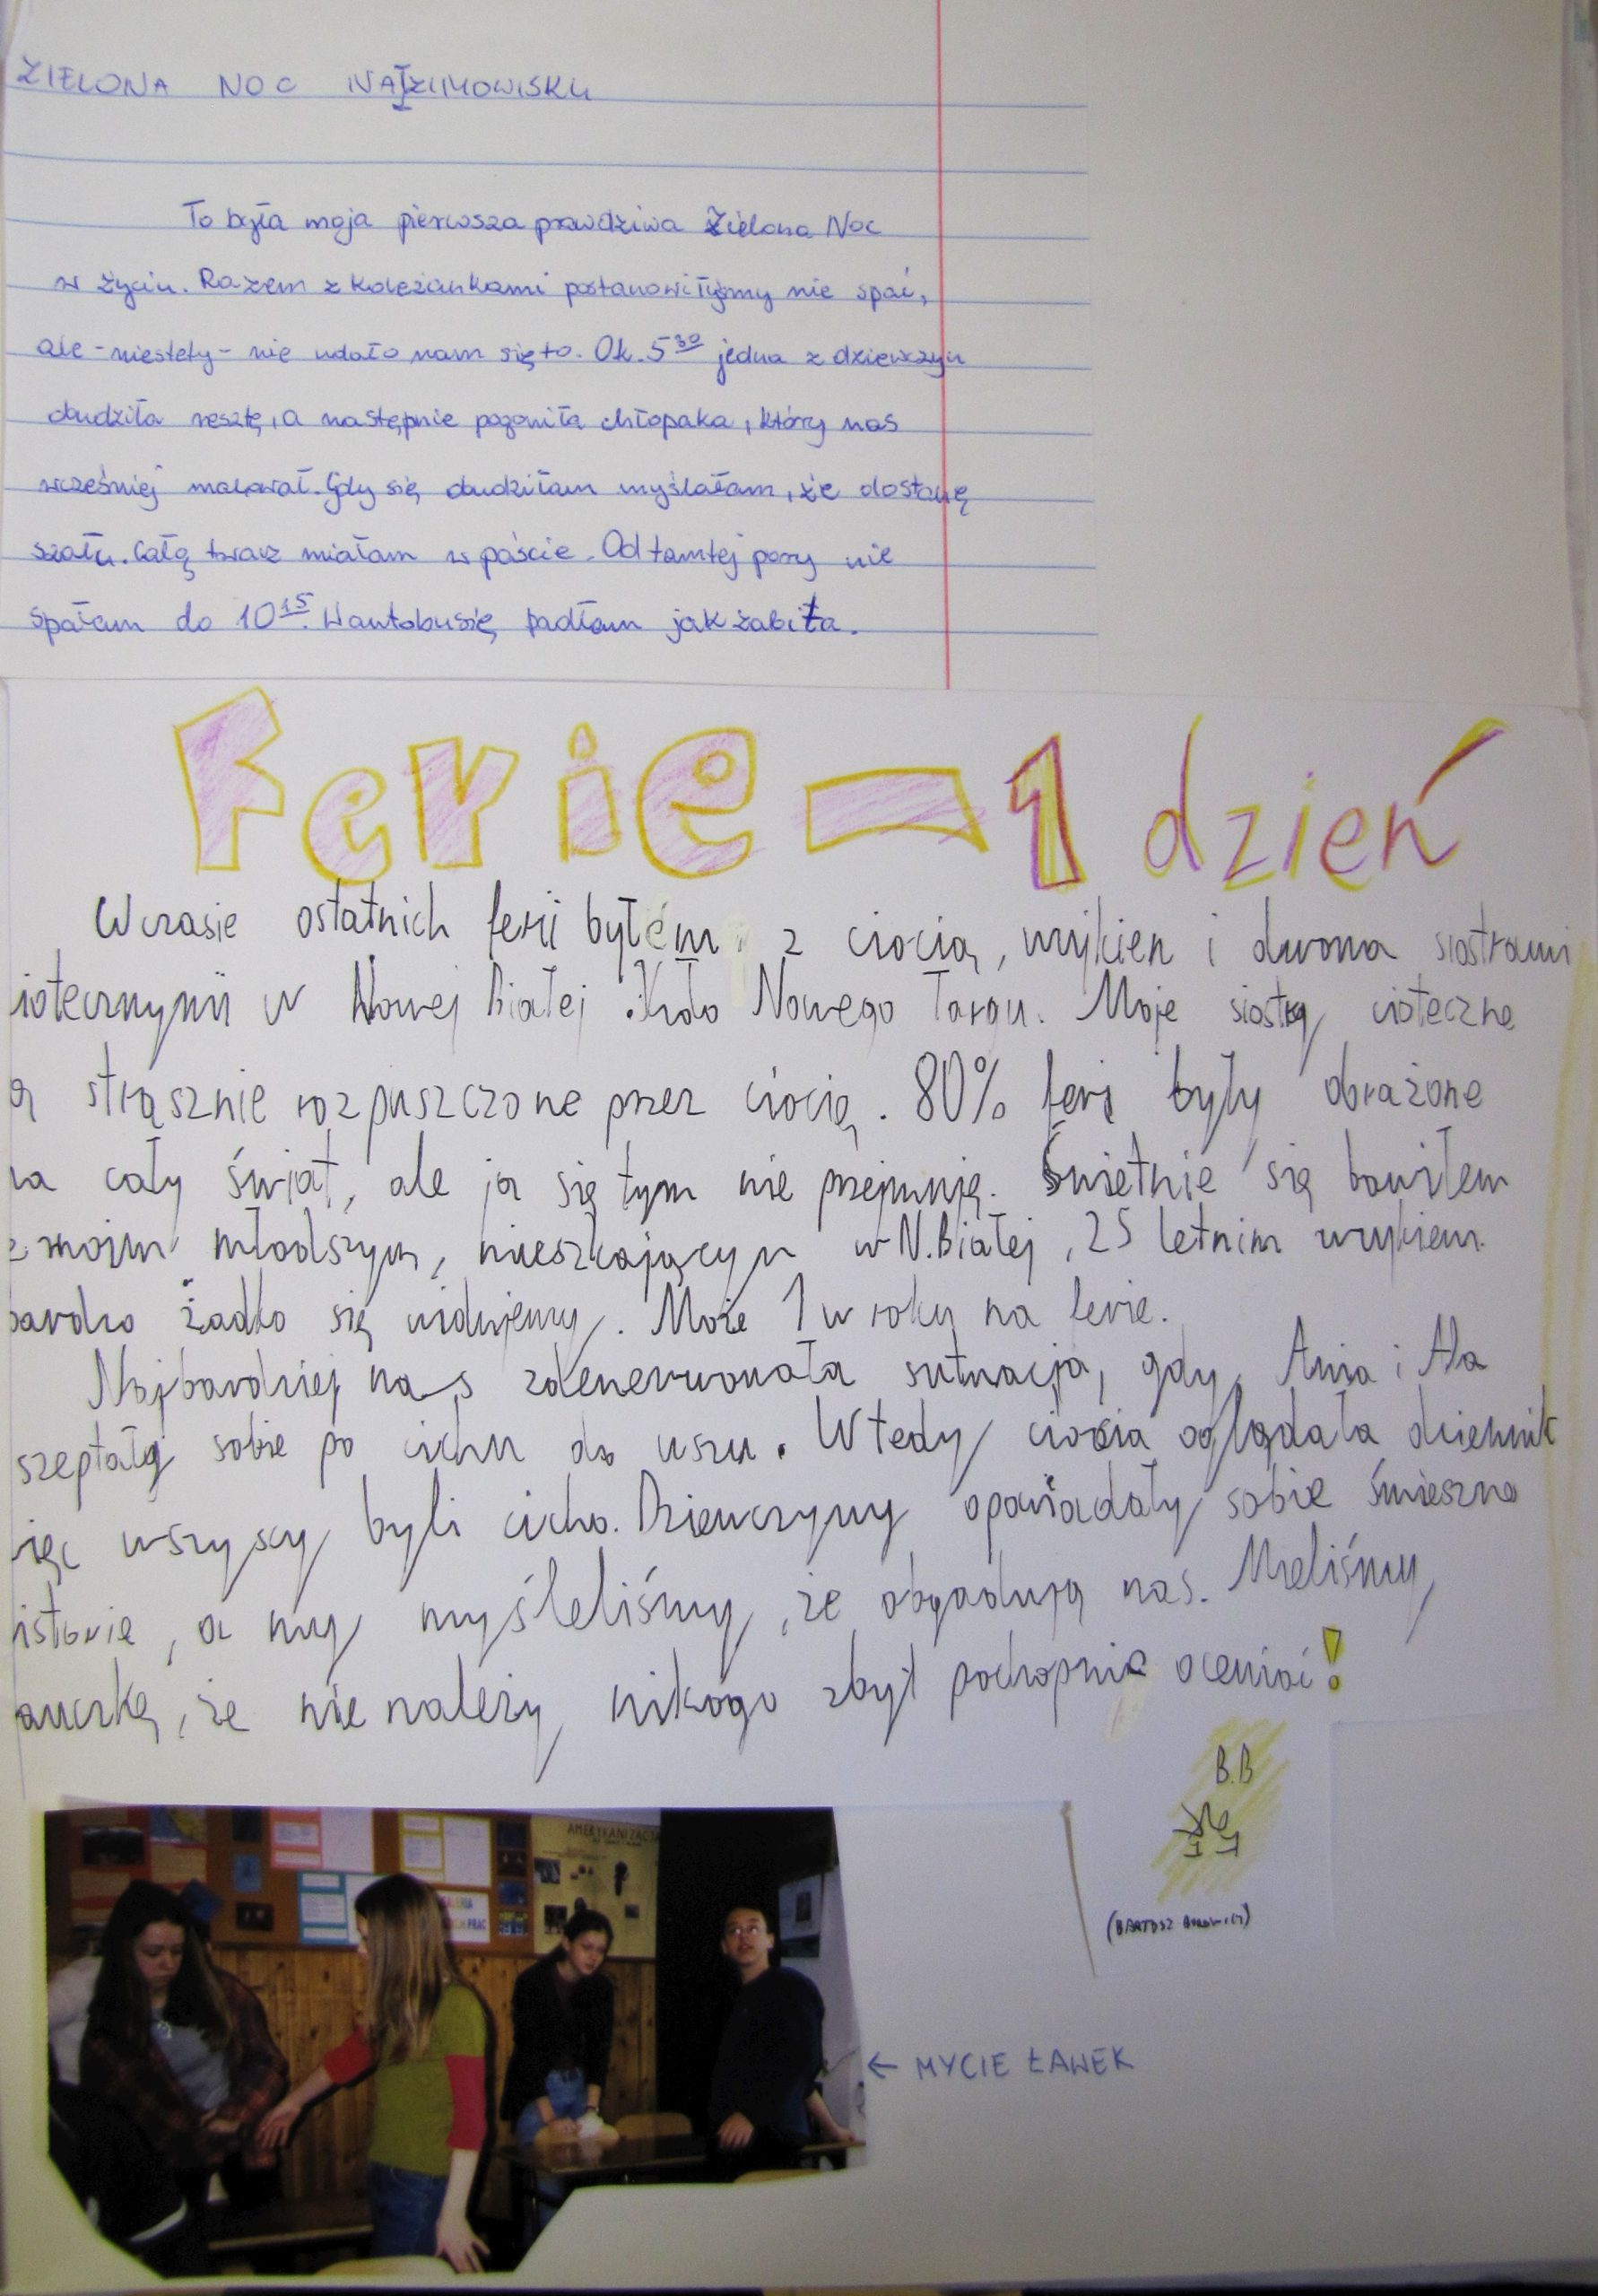 ZIELONA NOC NA ZIMOWISKU
To była moja pierwsza prawdziwa Zielona Noc
w życiu. Razem z koleżankami postanowiłyśmy nie spać,
ale - niestety - nie udało nam się to. Ok. 5³⁰ jedna z dziewczyn
obudziła resztę, a następnie pogoniła chłopaka, który nas
wcześniej malował. Gdy się obudziłam myślałam, że dostanę
szału. Całą twarz miałam w paście. Od tamtej pory nie
spałam do 10¹⁵. W autobusie padłam jak zabita.
Ferie - 1 dzień
W czasie ostatnich ferii byłem z ciocią, wujkiem i dwoma siostrami
iotecznymi w Nowej Białej koło Nowego Targu. Moje siostry cioteczne
ą strasznie rozpuszczone przez ciocię. 80% ferii były obrażone
na cały świat, ale ja się tym nie przejmuję. Świetnie się bawiłem
z moim młodszym, mieszkającym w N.Białej, 25 letnim wujkiem.
bardzo żadko się widujemy. Może 1 w roku na ferie.
Najbardziej nas zdenerwowała sytuacja, gdy Ania i Ala
szeptały sobie po cichu do uszu. Wtedy ciocia oglądała dziennik
ięc wszyscy byli cicho. Dziewczyny opowiadały sobie śmieszne
istorie, a my myśleliśmy, że obgadują nas. Mieliśmy
auczkę, że nie należy nikogo zbyt pochopnie oceniać!
B.B
(BARTOSZ
AMERYKANIZACJA
PRAC
← MYCIE ŁAWEK